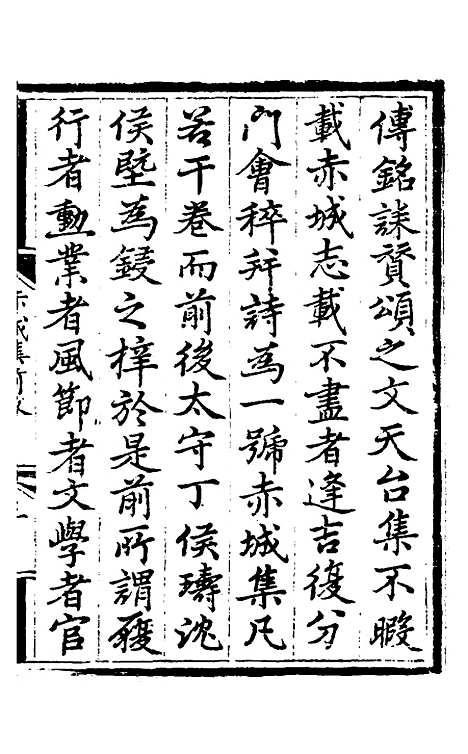 傳銘誄賛頌之文天台集不暇
載赤城志載不盡者逢吉復分
門會稡并詩為一號赤城集凡
若干卷而前後太守丁侯璹沈
侯塈為鋟之梓於是前所謂
行者勳業者風節者文學者官
赤城集